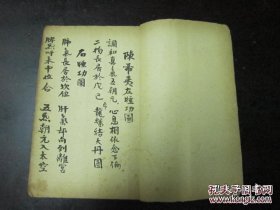 陳希夷左睡功圖
調和真氣五朝元 心息相依念不偏
二物長居於戊己 龍虎結大丹圓
右睡功圖
肺氣長居於坎位 肝氣却向到離宮
脾氣呼來中位合 五氣朝元入太空